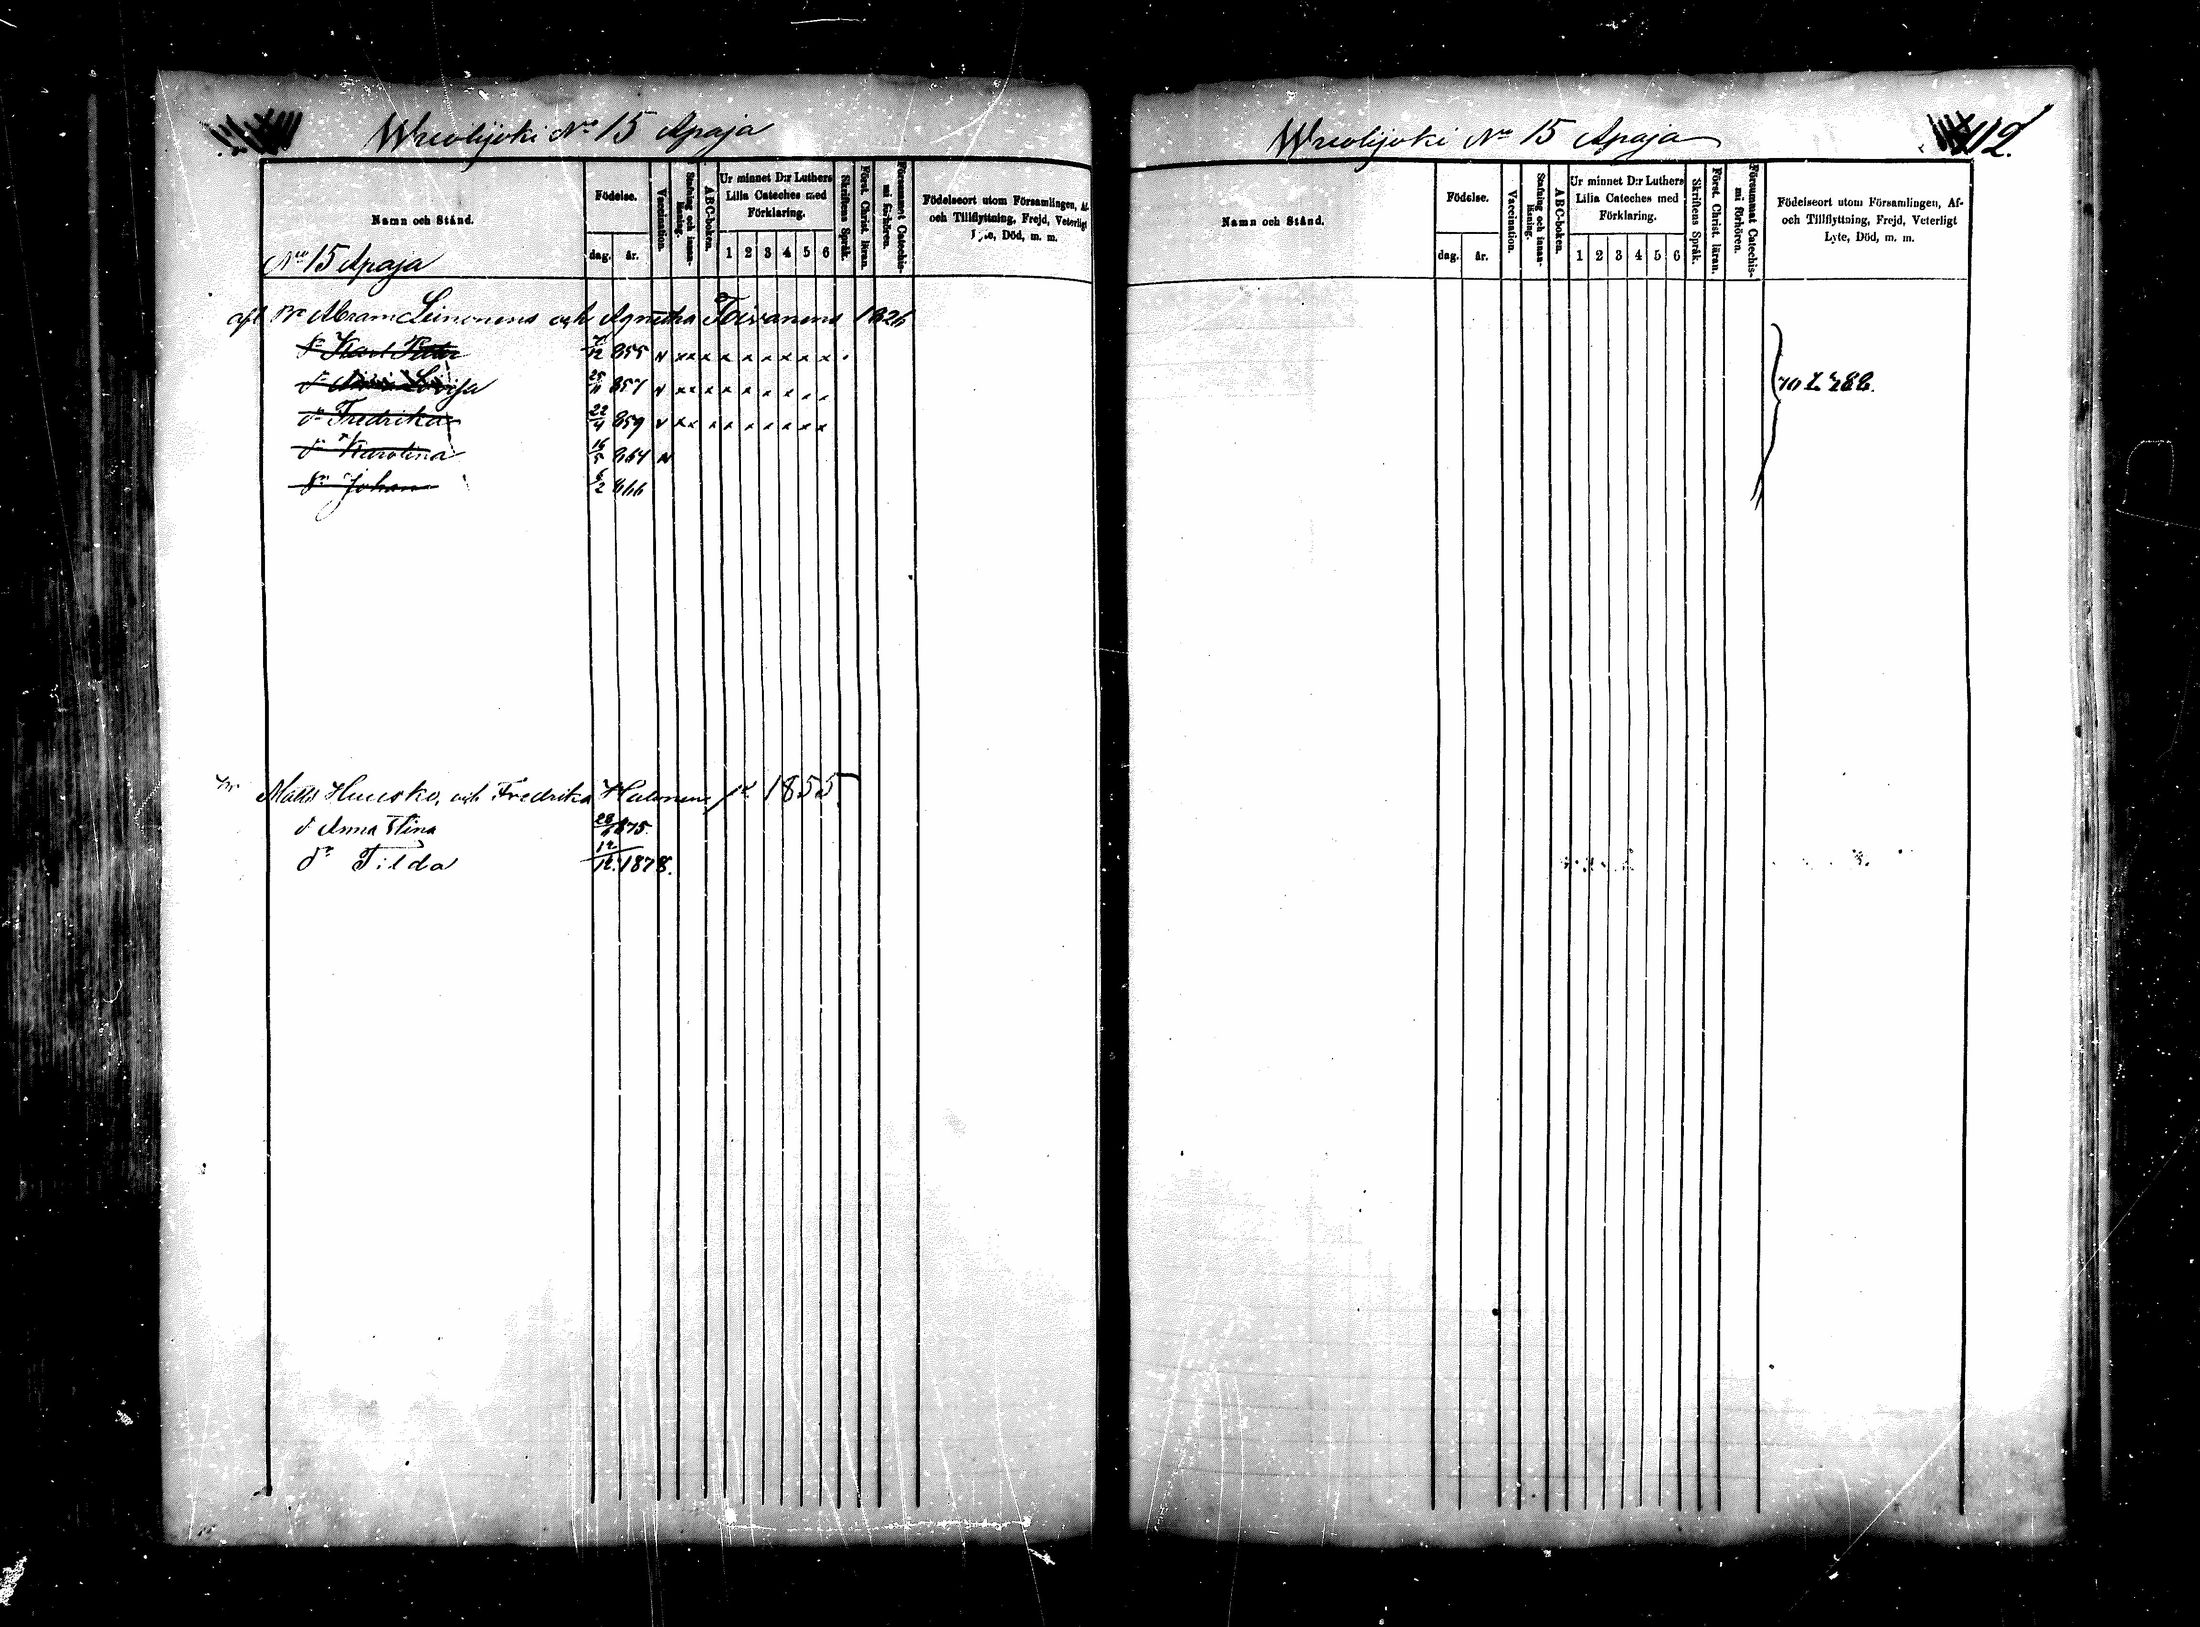 Wuolijoki No 15 Apaja
Namn och Stånd.
Födelse.
dag.
år.
Vaccination.
Stafning och innan-läsning.
ABC-boken.
Ur minnet D:r Luthers
Lilla Cateches med
Förklaring.
1 2 3 4 5 6
Skriftens Språk.
Först. Christ. läran.
Försummat Catechis-
mi förhören.
Födelseort utom Församlingen, Af-
och Tillflyttning, Frejd, Veterligt
Lyte, Död, m. m.
No 15 Apaja
Abram Leinonens och Agnetha Toivanens 1826
Karl Petter 12 855
Lovisa 25 11 857
dr Fredrika 22 4 859
dr Karolina 16 5 864
Johan 6 2 866
Matts Huusko, och Fredrika Halonens 1855
d Anna Stina 28 875
dr Tilda 12 12 1878.
Wuolijoki No 15 Apaja
112.
Namn och Stånd.
Födelse.
dag.
år.
Vaccination.
Stafning och innan-läsning.
ABC-boken.
Ur minnet D:r Luthers
Lilla Cateches med
Förklaring.
1 2 3 4 5 6
Skriftens Språk.
Först. Christ. läran.
Försummat Catechis-
mi förhören.
Födelseort utom Församlingen, Af-
och Tillflyttning, Frejd, Veterligt
Lyte, Död, m. m.